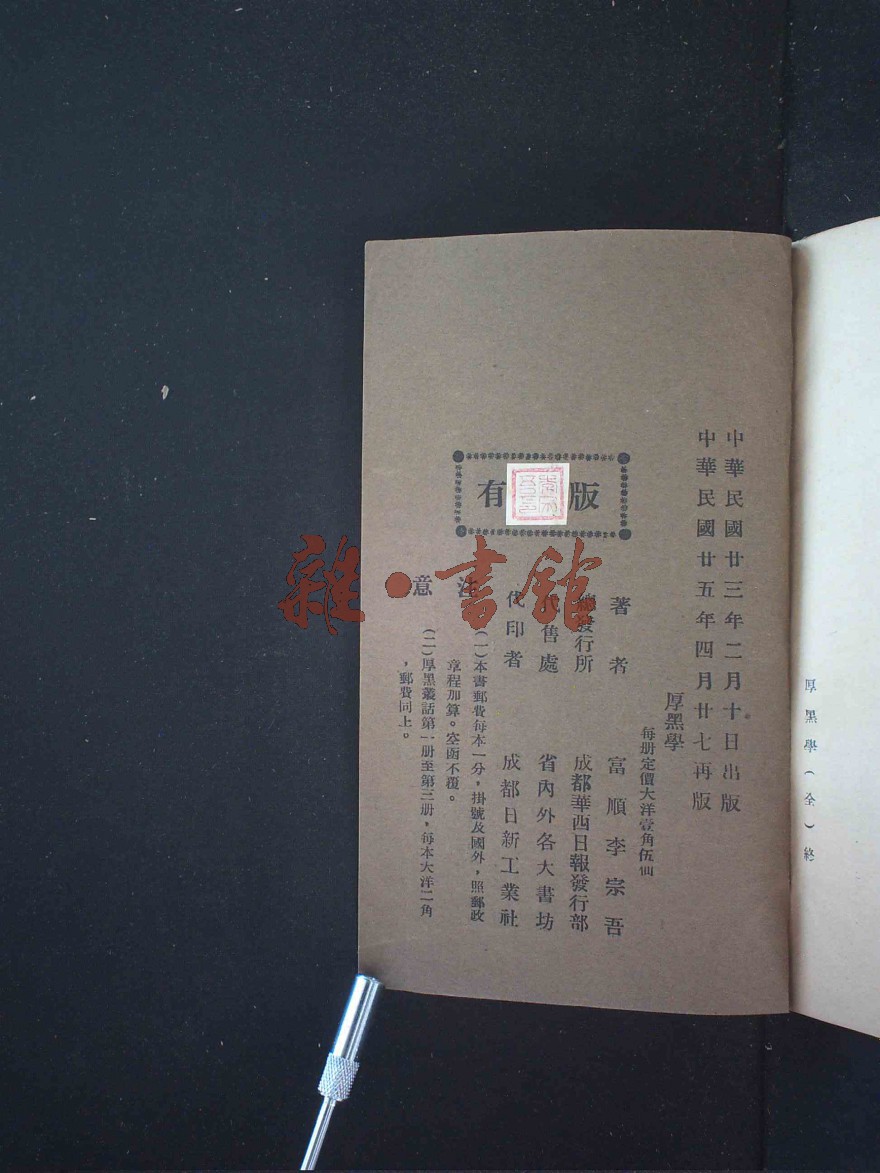 厚黑學（全）終
中華民國廿三年二月十日出版
中華民國廿五年四月廿七再版
厚黑學
每册定價大洋壹角伍仙
著者 富順李宗吾
總發行所 成都華西日報發行部
代售處 省內外各大書坊
代印者 成都日新工業社
版 有
注意
（一）本書郵費每本一分，掛號及國外，照郵政
章程加算。空函不覆。
（二）厚黑叢話第一册至第三册，每本大洋二角
，郵費同上。
雜·書館